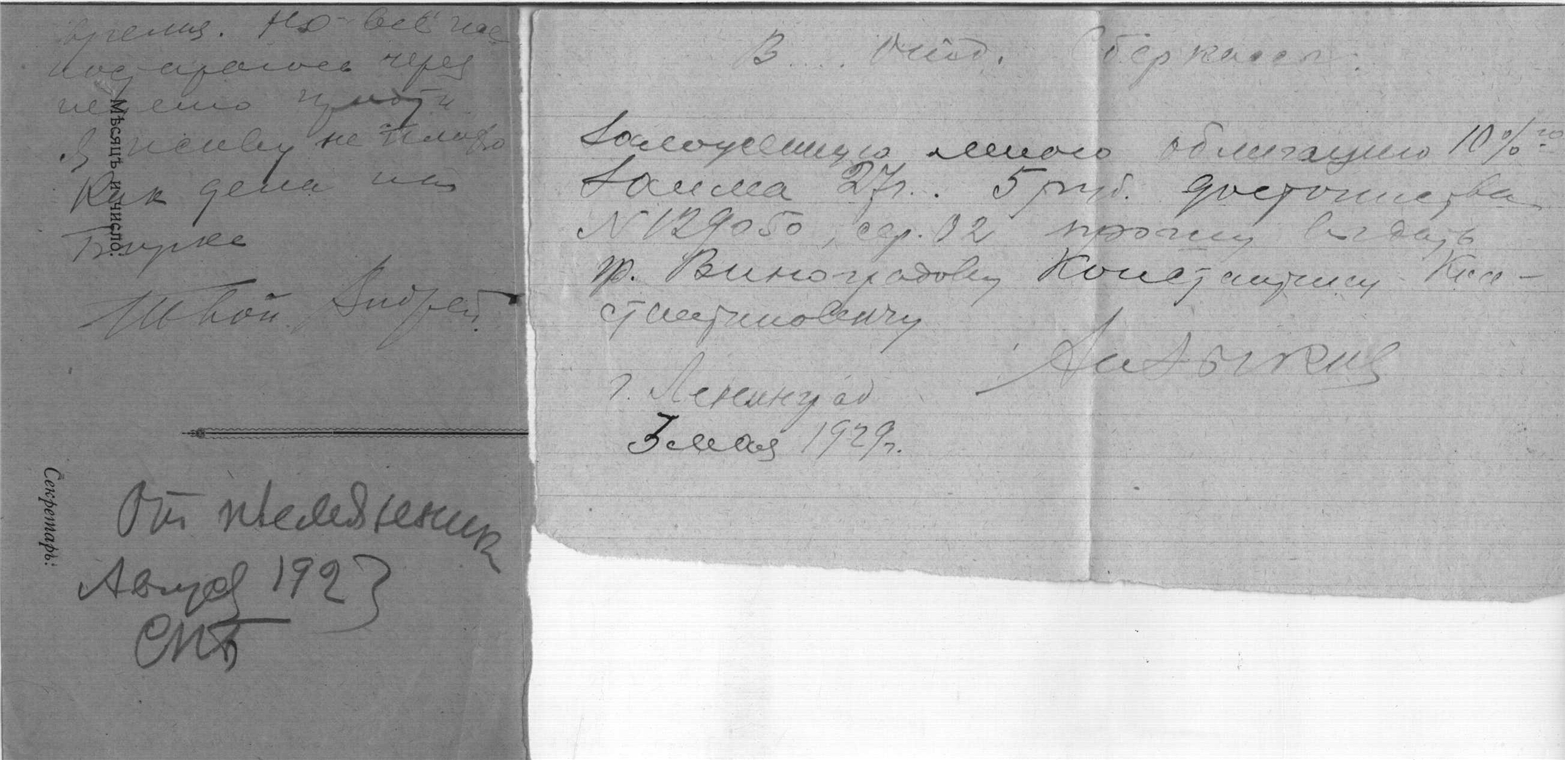 время. Но всё
через
Я живу не плохо
Как дела
Твой Андрей.
Мѣсяцъ и число:
Секретарь:
От племянника
Август 1923
СПБ
В ... Отд. Сберкассы.
Заложенную мною облигацию 10%
займа 27г. 5 руб. достоинства
N 129050, сер. 02 прошу выдать
гр. Виноградову Константину Кон-
стантиновичу
г. Ленинград
3 мая 1929г.